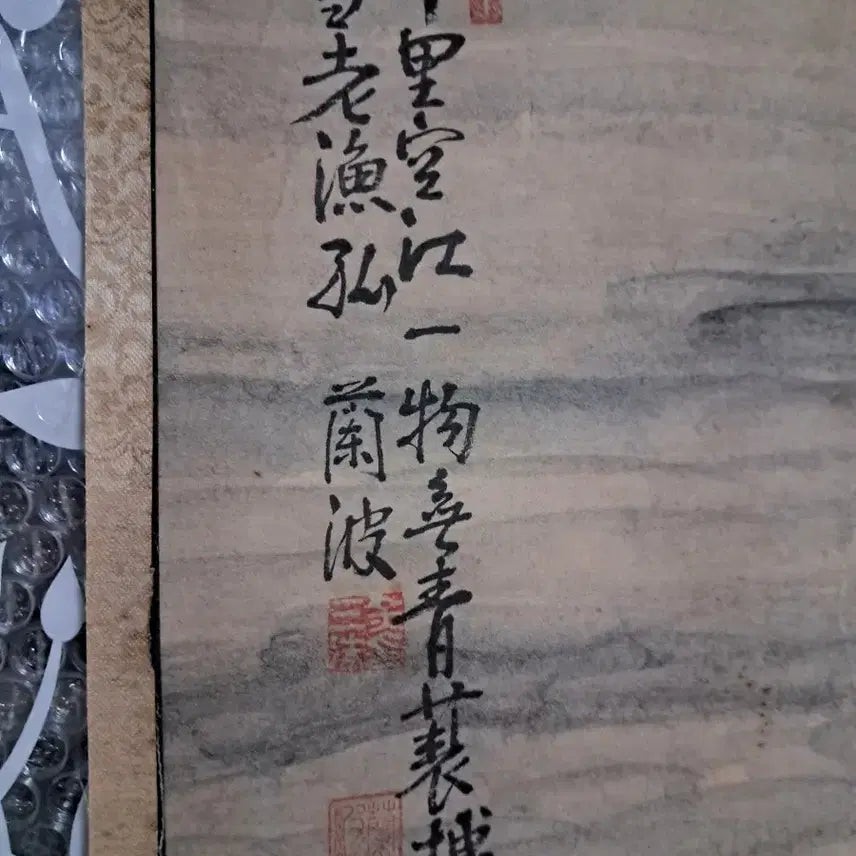 里空江一物無青蓑
老漁孤 蘭波